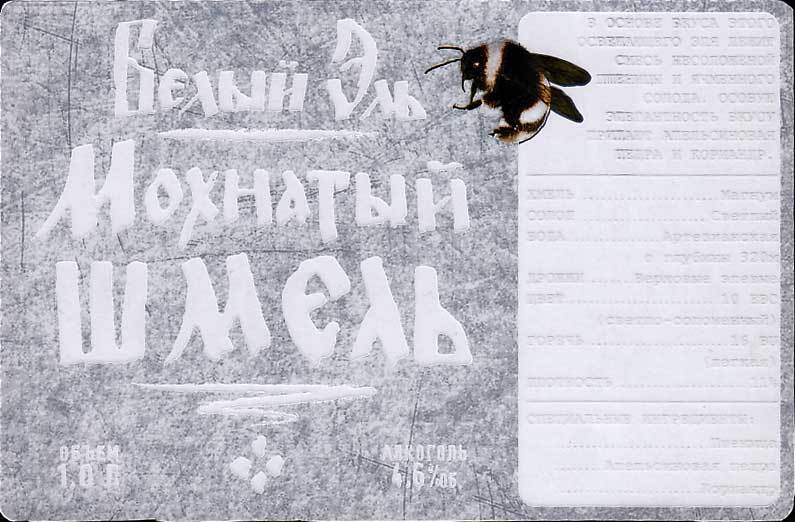 Белый Эль
Мохнатый
шмель
ОБЪЕМ
1,0 Л
АЛКОГОЛЬ
4,6 % ОБ.
В ОСНОВЕ ВКУСА ЭТОГО
ОСВЕЖАЮЩЕГО ЭЛЯ ЛЕЖИТ
СМЕСЬ НЕСОЛОЖЕНОЙ
ПШЕНИЦЫ И ЯЧМЕННОГО
СОЛОДА. ОСОБУЮ
ЭЛЕГАНТНОСТЬ ВКУСУ
ПРИДАЮТ АПЕЛЬСИНОВАЯ
ЦЕДРА И КОРИАНДР.
ХМЕЛЬ
СОЛОД Светлый
ВОДА Артезианская
с глубины 320м
ДРОЖЖИ
ЦВЕТ 10 EBC
(светло-соломенный)
ГОРЕЧЬ 16 BU
(легкая)
ПЛОТНОСТЬ
СПЕЦИАЛЬНЫЕ ИНГРЕДИЕНТЫ:
Пшеница
Апельсиновая цедра
Кориандр